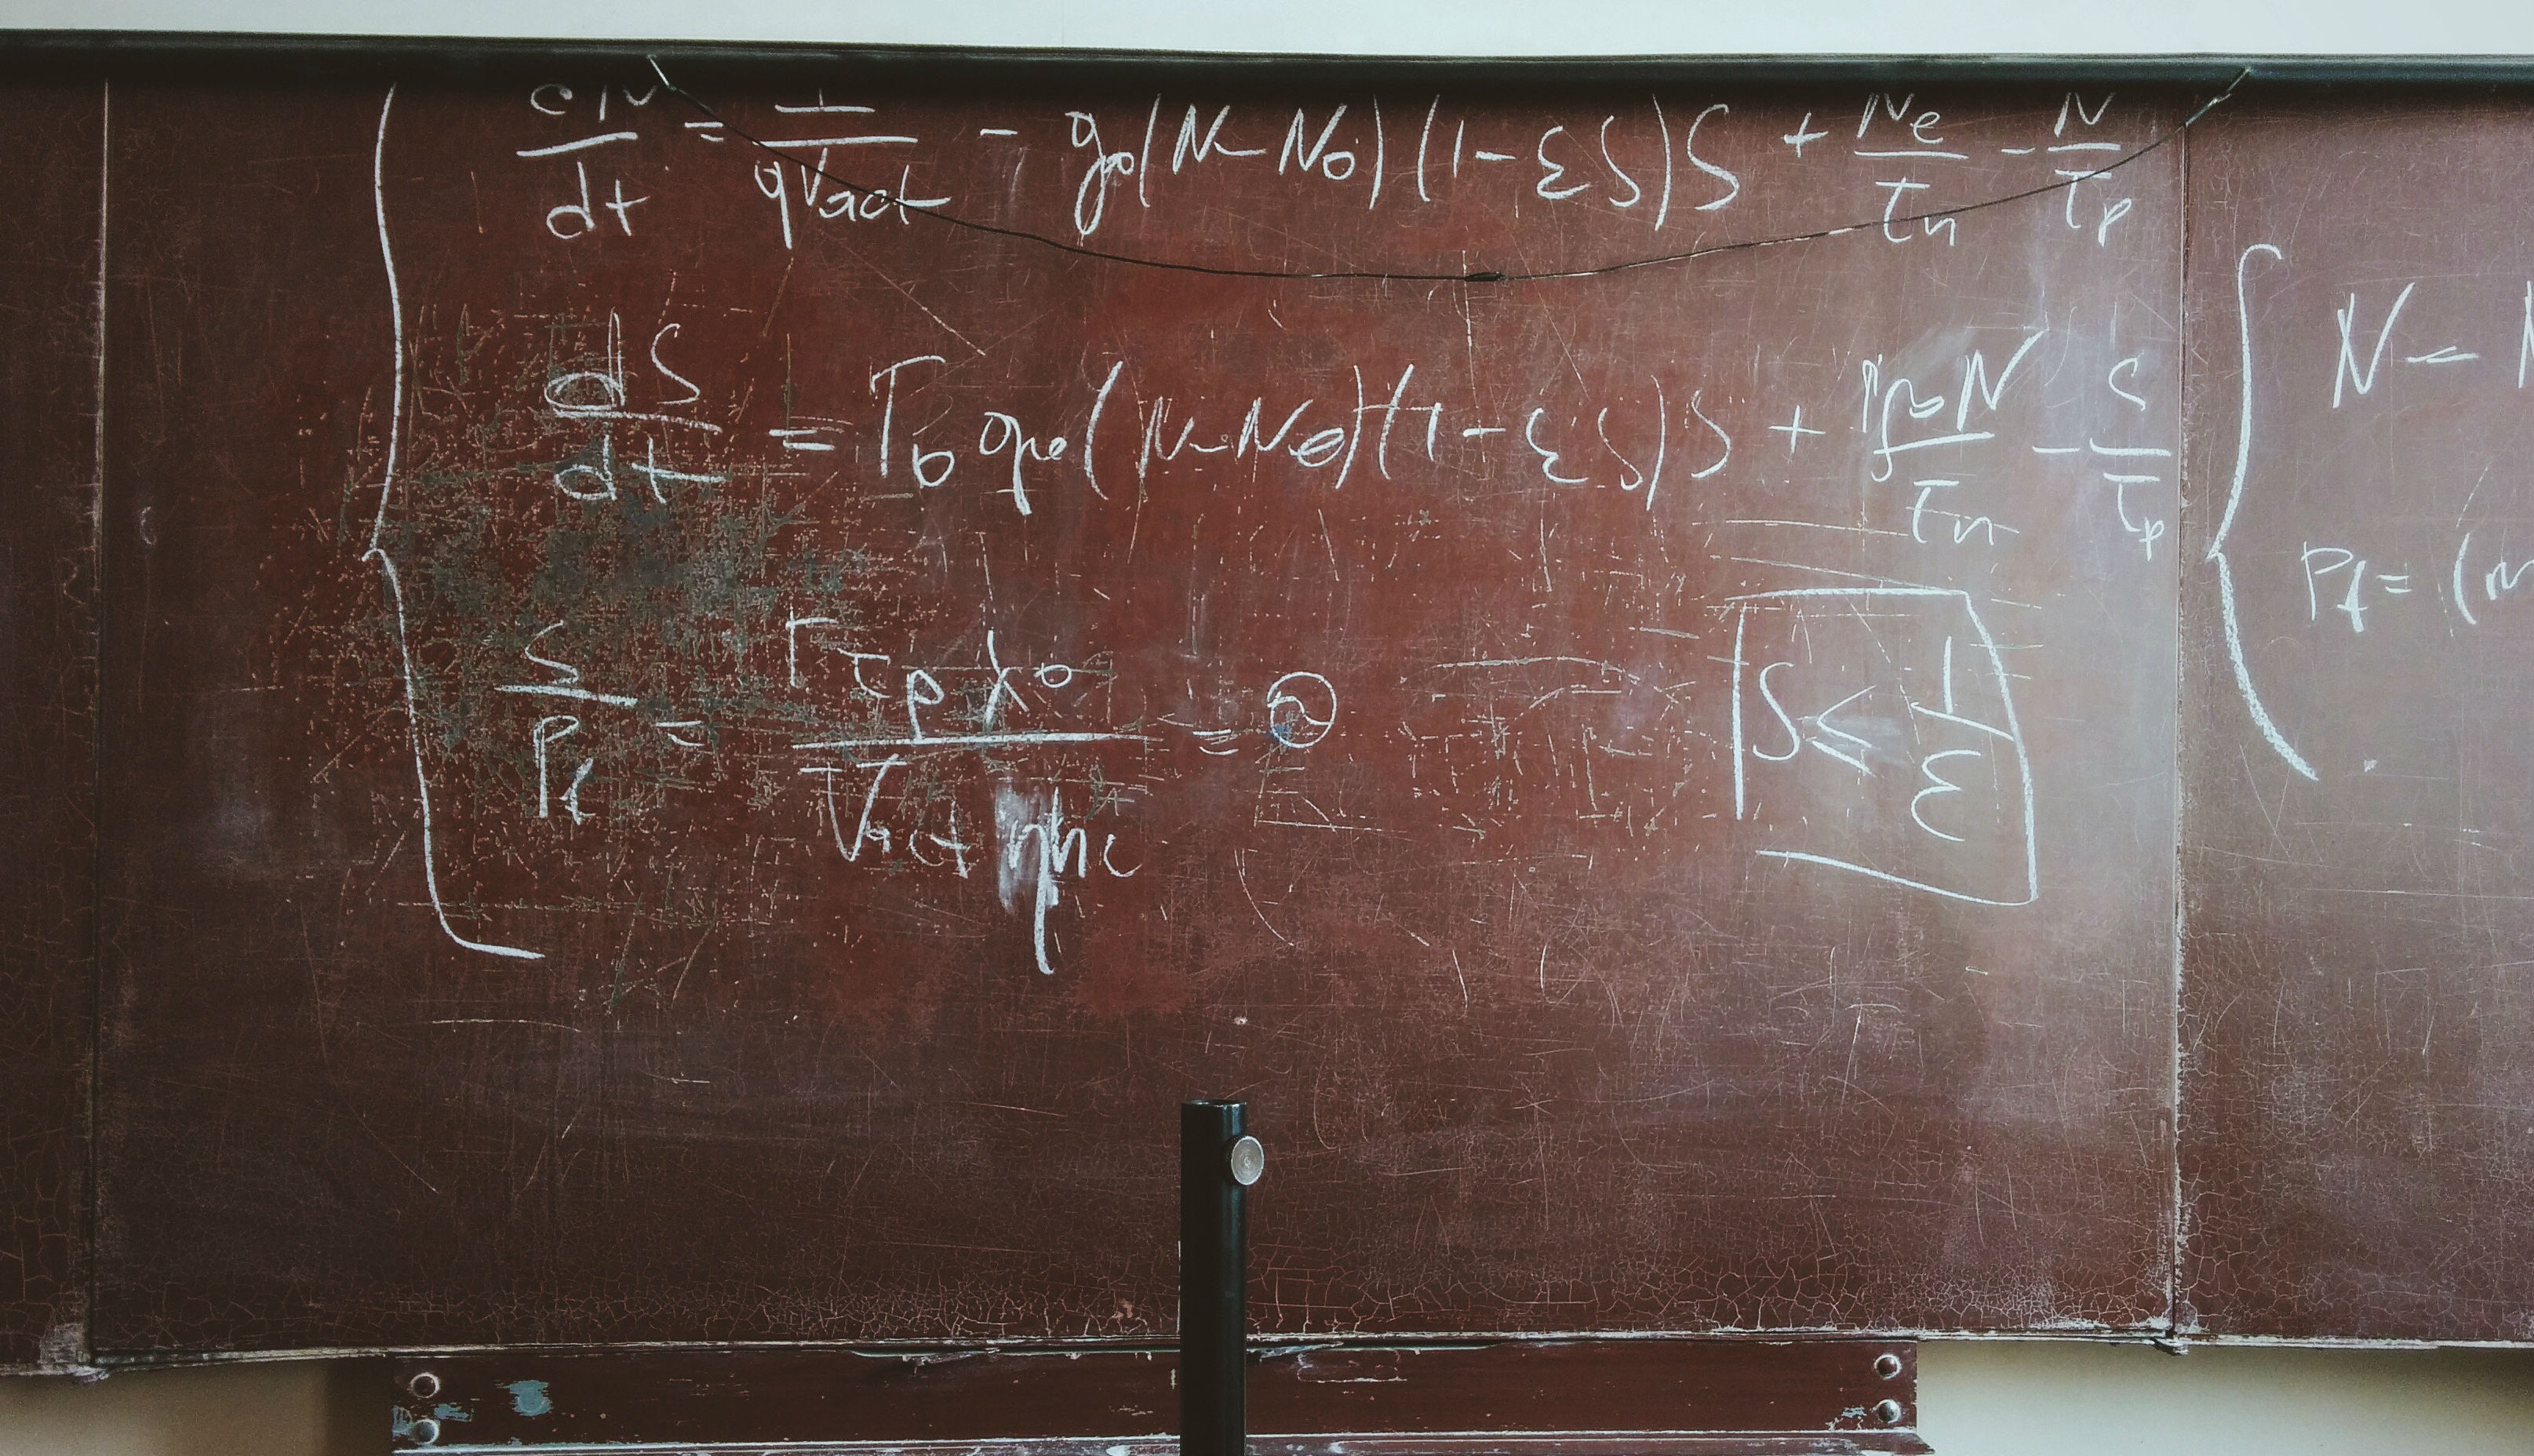 dN/dt = I/qVact - g₀(N - N₀)(1 - εS)S + Ne/τn - N/τp
dS/dt = Γ₀ g₀(N - N₀)(1 - εS)S + ΓβN/τn - S/τp
S/Pf = Γτpλ₀/Vact ηhc = ϑ
S ≤ 1/ε
N -
Pf = (m